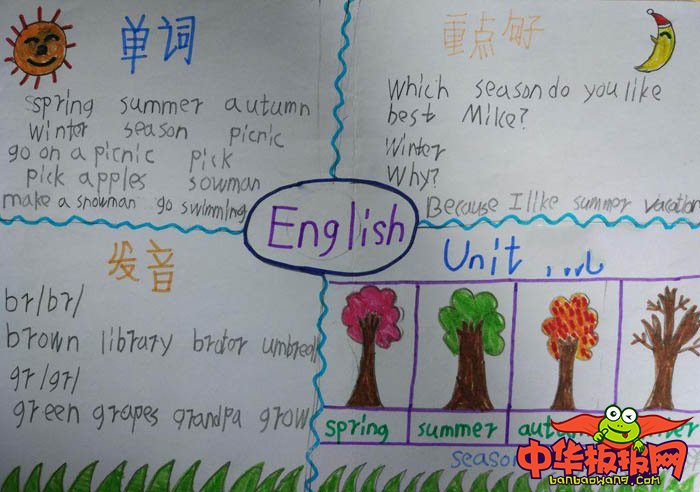 单词
spring summer autumn
winter season picnic
go on a picnic pick
pick apples sowman
make a snowman go swimming
重点句子
Which season do you like
best Mike?
Winter
Why?
Because I like summer vacation
English
发音
br/br/
brown library brotor
gr/gr/
green grapes grandpa grow
Unit
spring summer
seaso
中华板报网
banbaowang.com